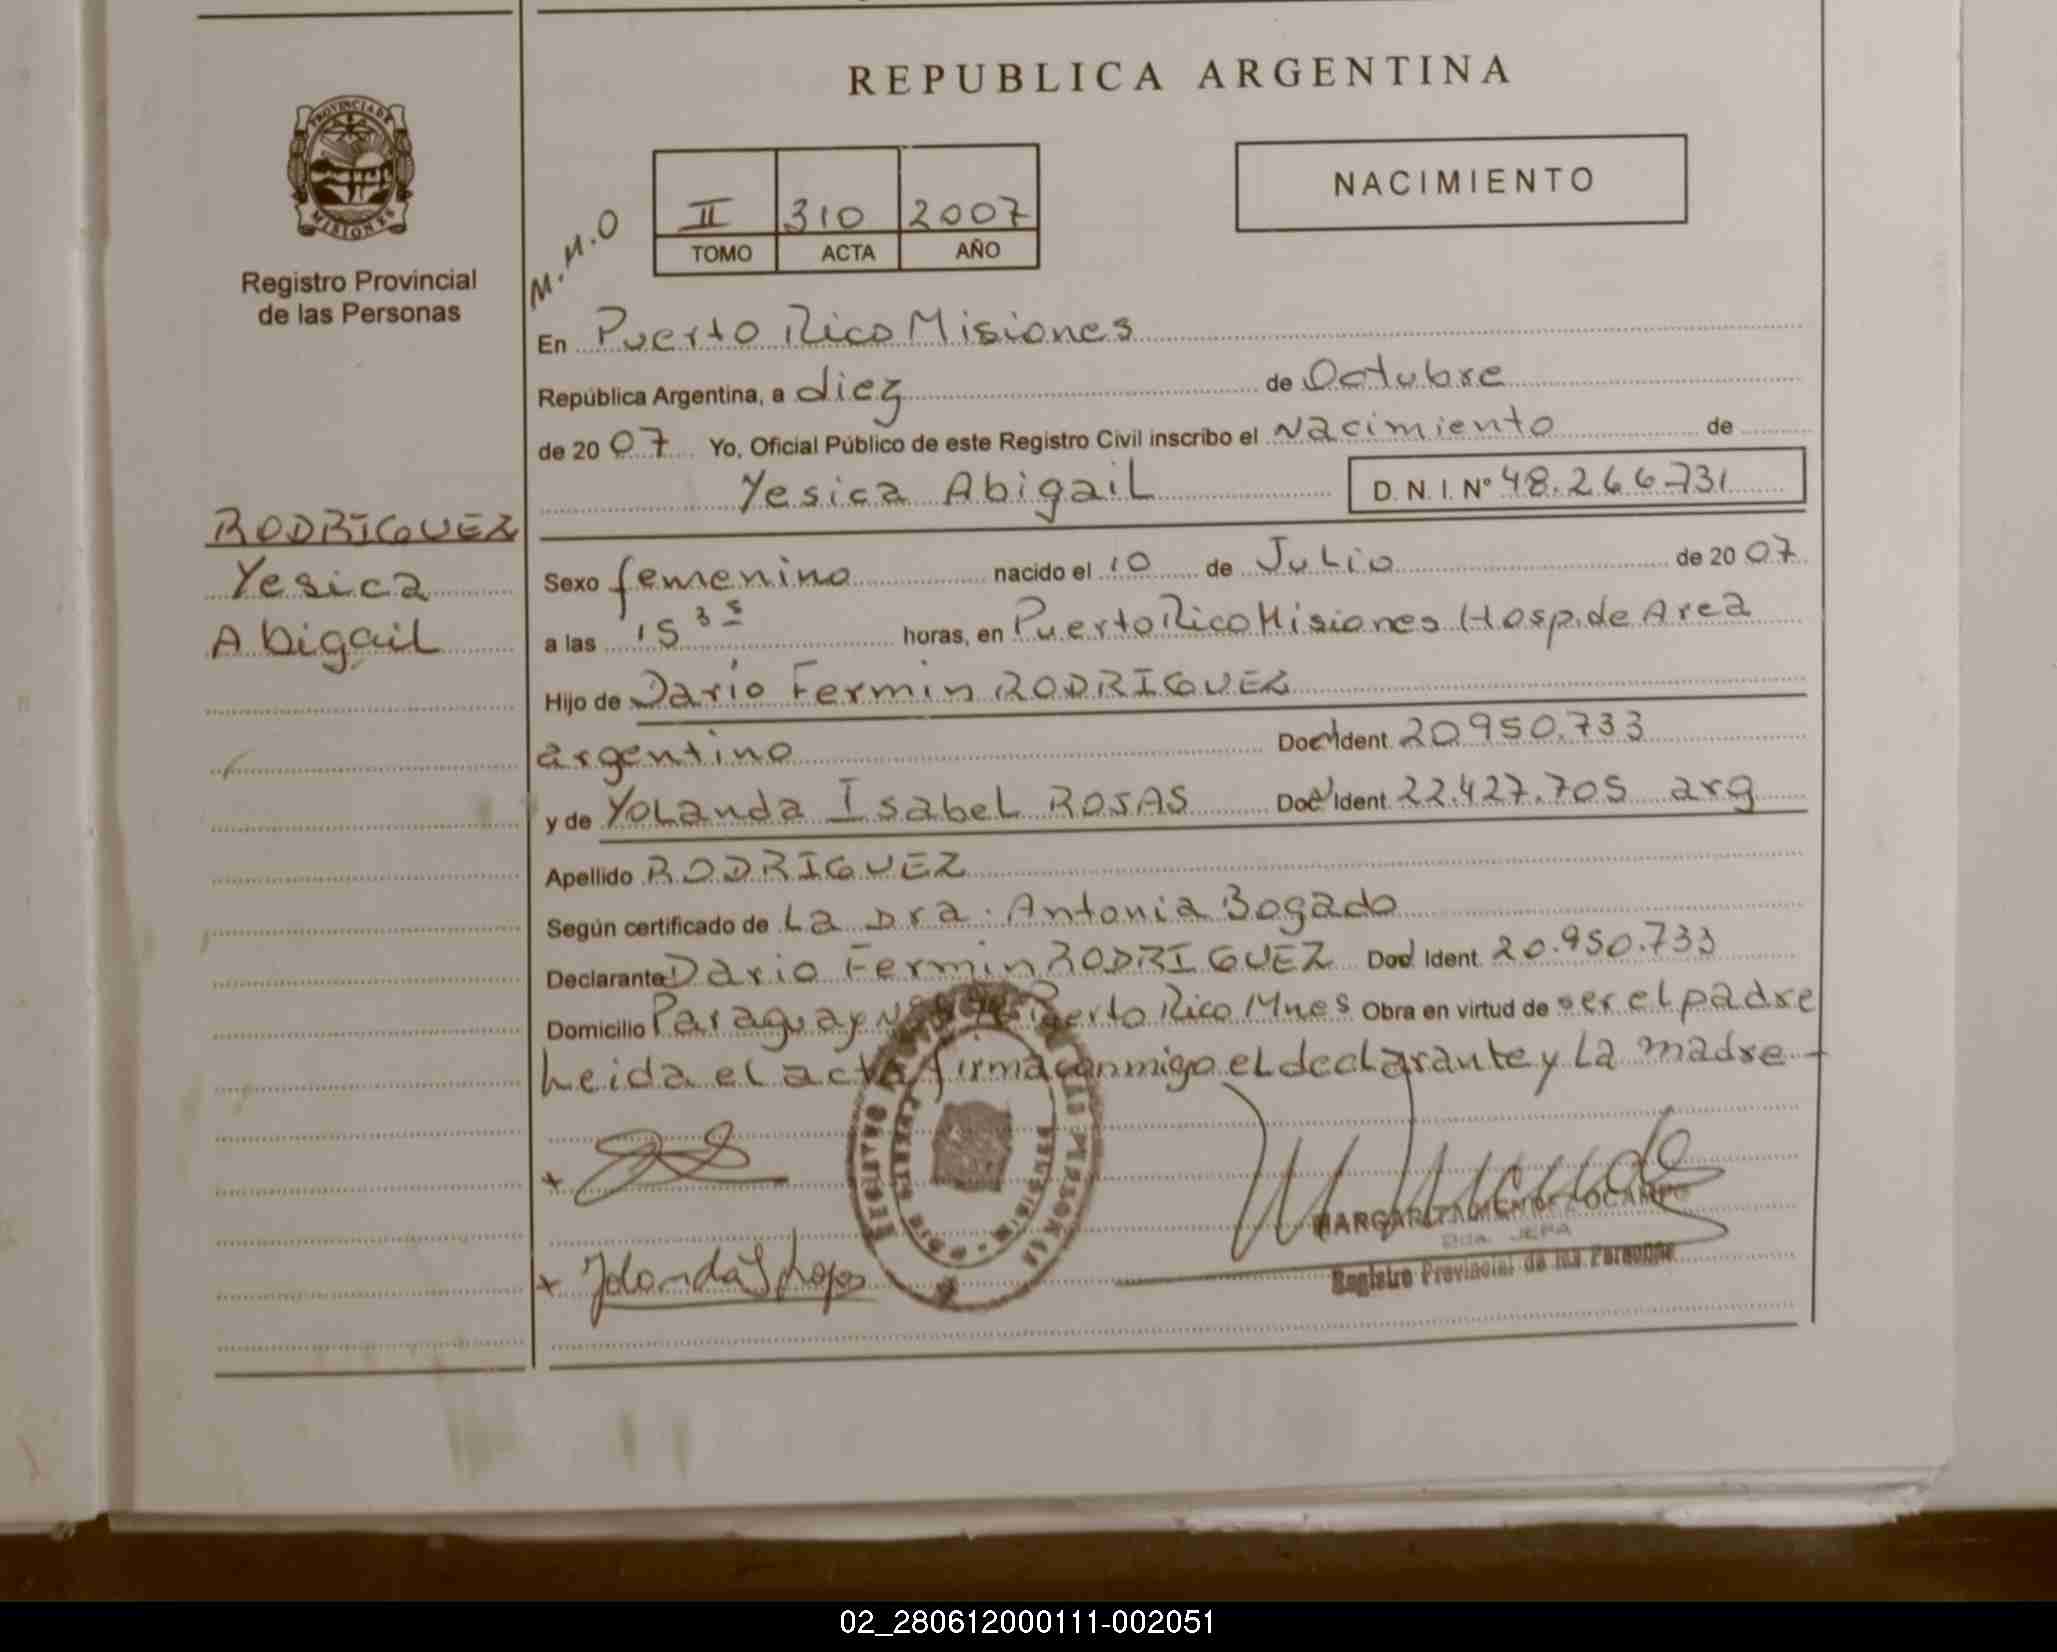 REPUBLICA ARGENTINA
PROVINCIA DE
MISIONES
Registro Provincial
de las Personas
M.M.O
II 310 2007
TOMO ACTA AÑO
NACIMIENTO
En Puerto Rico Misiones
República Argentina, a diez de Octubre
de 20 07 Yo, Oficial Público de este Registro Civil inscribo el Nacimiento de
Yesica Abigail D.N.I. Nº 48.266.731
RODRIGUEZ
Yesica
Abigail
Sexo femenino nacido el 10 de Julio de 20 07
a las 15 35 horas, en Puerto Rico Misiones Hosp. de Area
Hijo de Dario Fermin RODRIGUEZ
argentino Doc. Ident. 20.950.733
y de Yolanda Isabel ROJAS Doc. Ident. 22.427.705 arg
Apellido RODRIGUEZ
Según certificado de La Dra. Antonia Bogado
Declarante Dario Fermin RODRIGUEZ Doc. Ident. 20.950.733
Domicilio Paraguay Puerto Rico Mnes Obra en virtud de ser el padre
Leida el acta firma conmigo el declarante y La madre
+
+ Yolanda I Rojas
MARGARITA OCAMPO
JEFA
Registro Provincial de las Personas
02_280612000111-002051